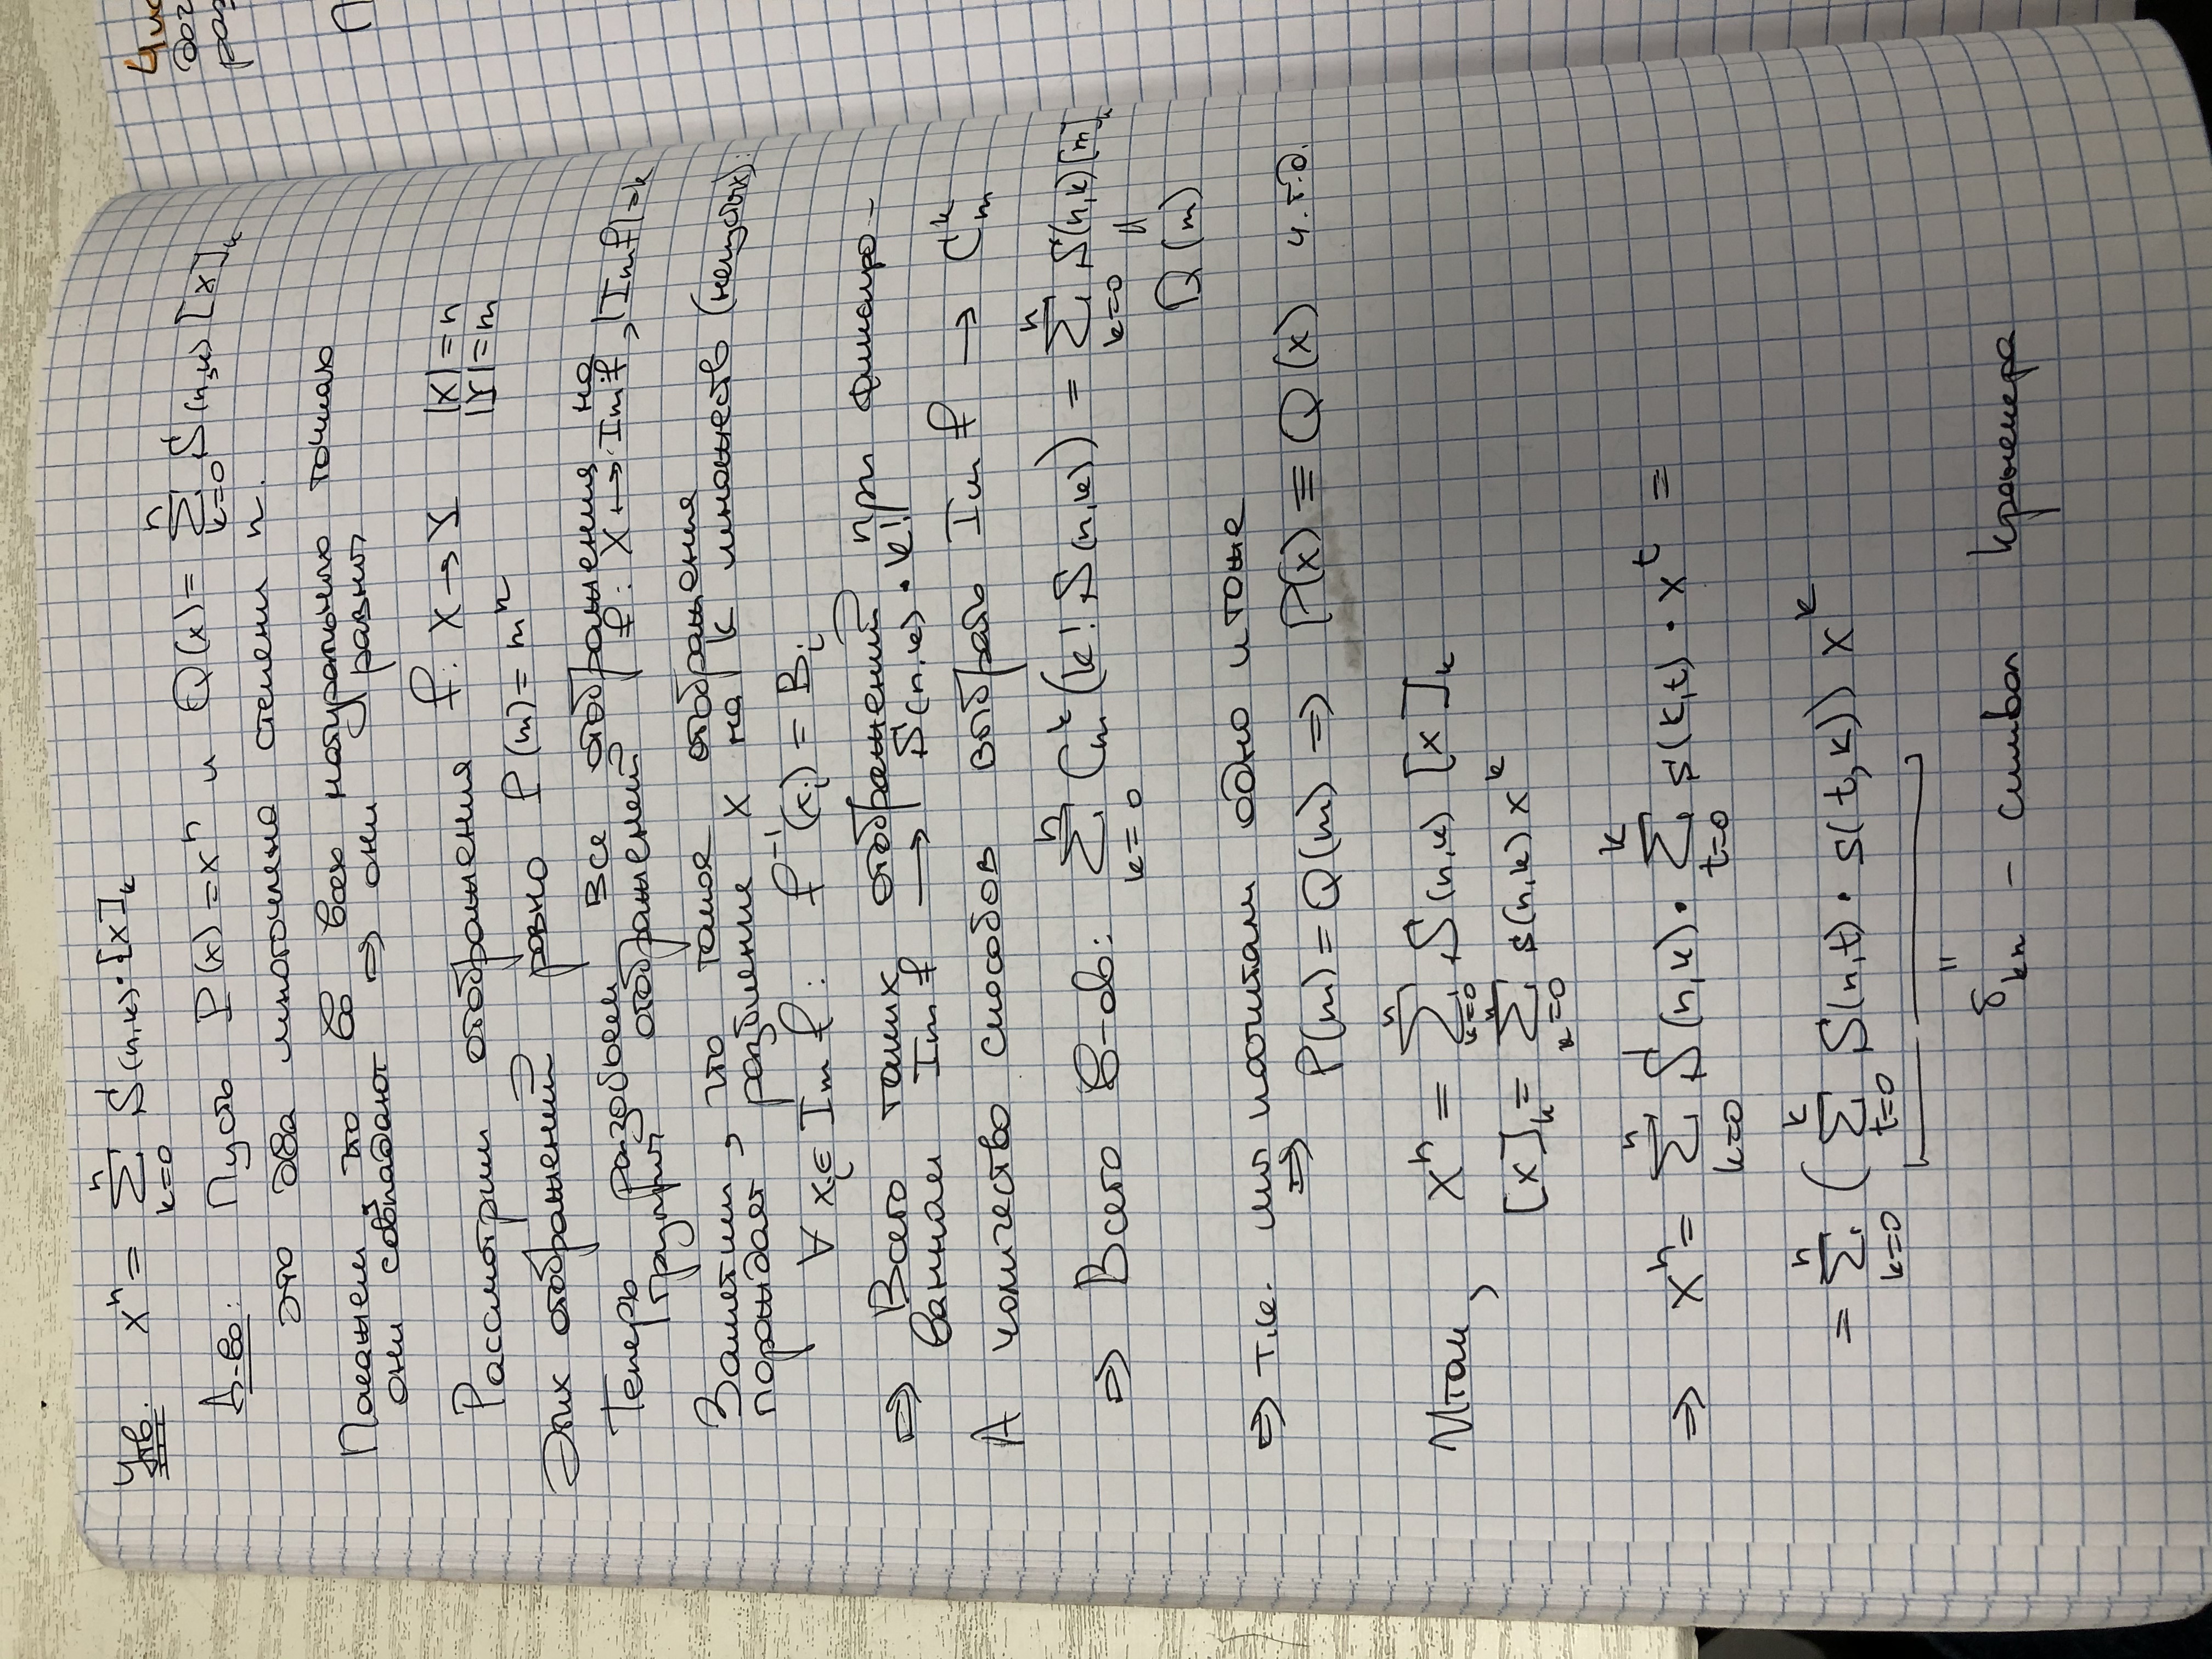 Утв. xⁿ = Σ_{k=0}^{n} S(n,k)·[x]_k
Д-во: Пусть P(x) = xⁿ и Q(x) = Σ_{k=0}^{n} S(n,k) [x]_k
это два многочлена степени n.
Покажем, что во всех натуральных точках
они совпадают ⇒ они равны
Рассмотрим отображения f: X → Y |X| = n
|Y| = m
Этих отображений ровно P(m) = mⁿ
Теперь разобьем все отображения на
группы отображений f: X ↦ Im f, |Im f| = k
Заметим, что такое отображения
порождает разбиение X на k множеств (непустых):
∀ x_i ∈ Im f : f⁻¹(x_i) = B_i
⇒ Всего таких отображений при фиксиро-
ванном Im f → S(n,k)·k!
А количество способов выбрать Im f → C_m^k
⇒ Всего в-ов: Σ_{k=0}^{n} C_m^k (k! S(n,k)) = Σ_{k=0}^{n} S(n,k) [m]_k
||
Q(m)
⇒ т.к. мы посчитали одно и тоже
⇒ P(m) = Q(m) ⇒ P(x) ≡ Q(x) ч.т.д.
Итак, xⁿ = Σ_{k=0}^{n} S(n,k) [x]_k
[x]_k = Σ_{k=0}^{n} s(n,k) x^k
⇒ xⁿ = Σ_{k=0}^{n} S(n,k)· Σ_{t=0}^{k} s(k,t)·x^t =
= Σ_{k=0}^{n} ( Σ_{t=0}^{k} S(n,t)·s(t,k)) x^k
||
δ_{kn} – символ Кронекера
Чис